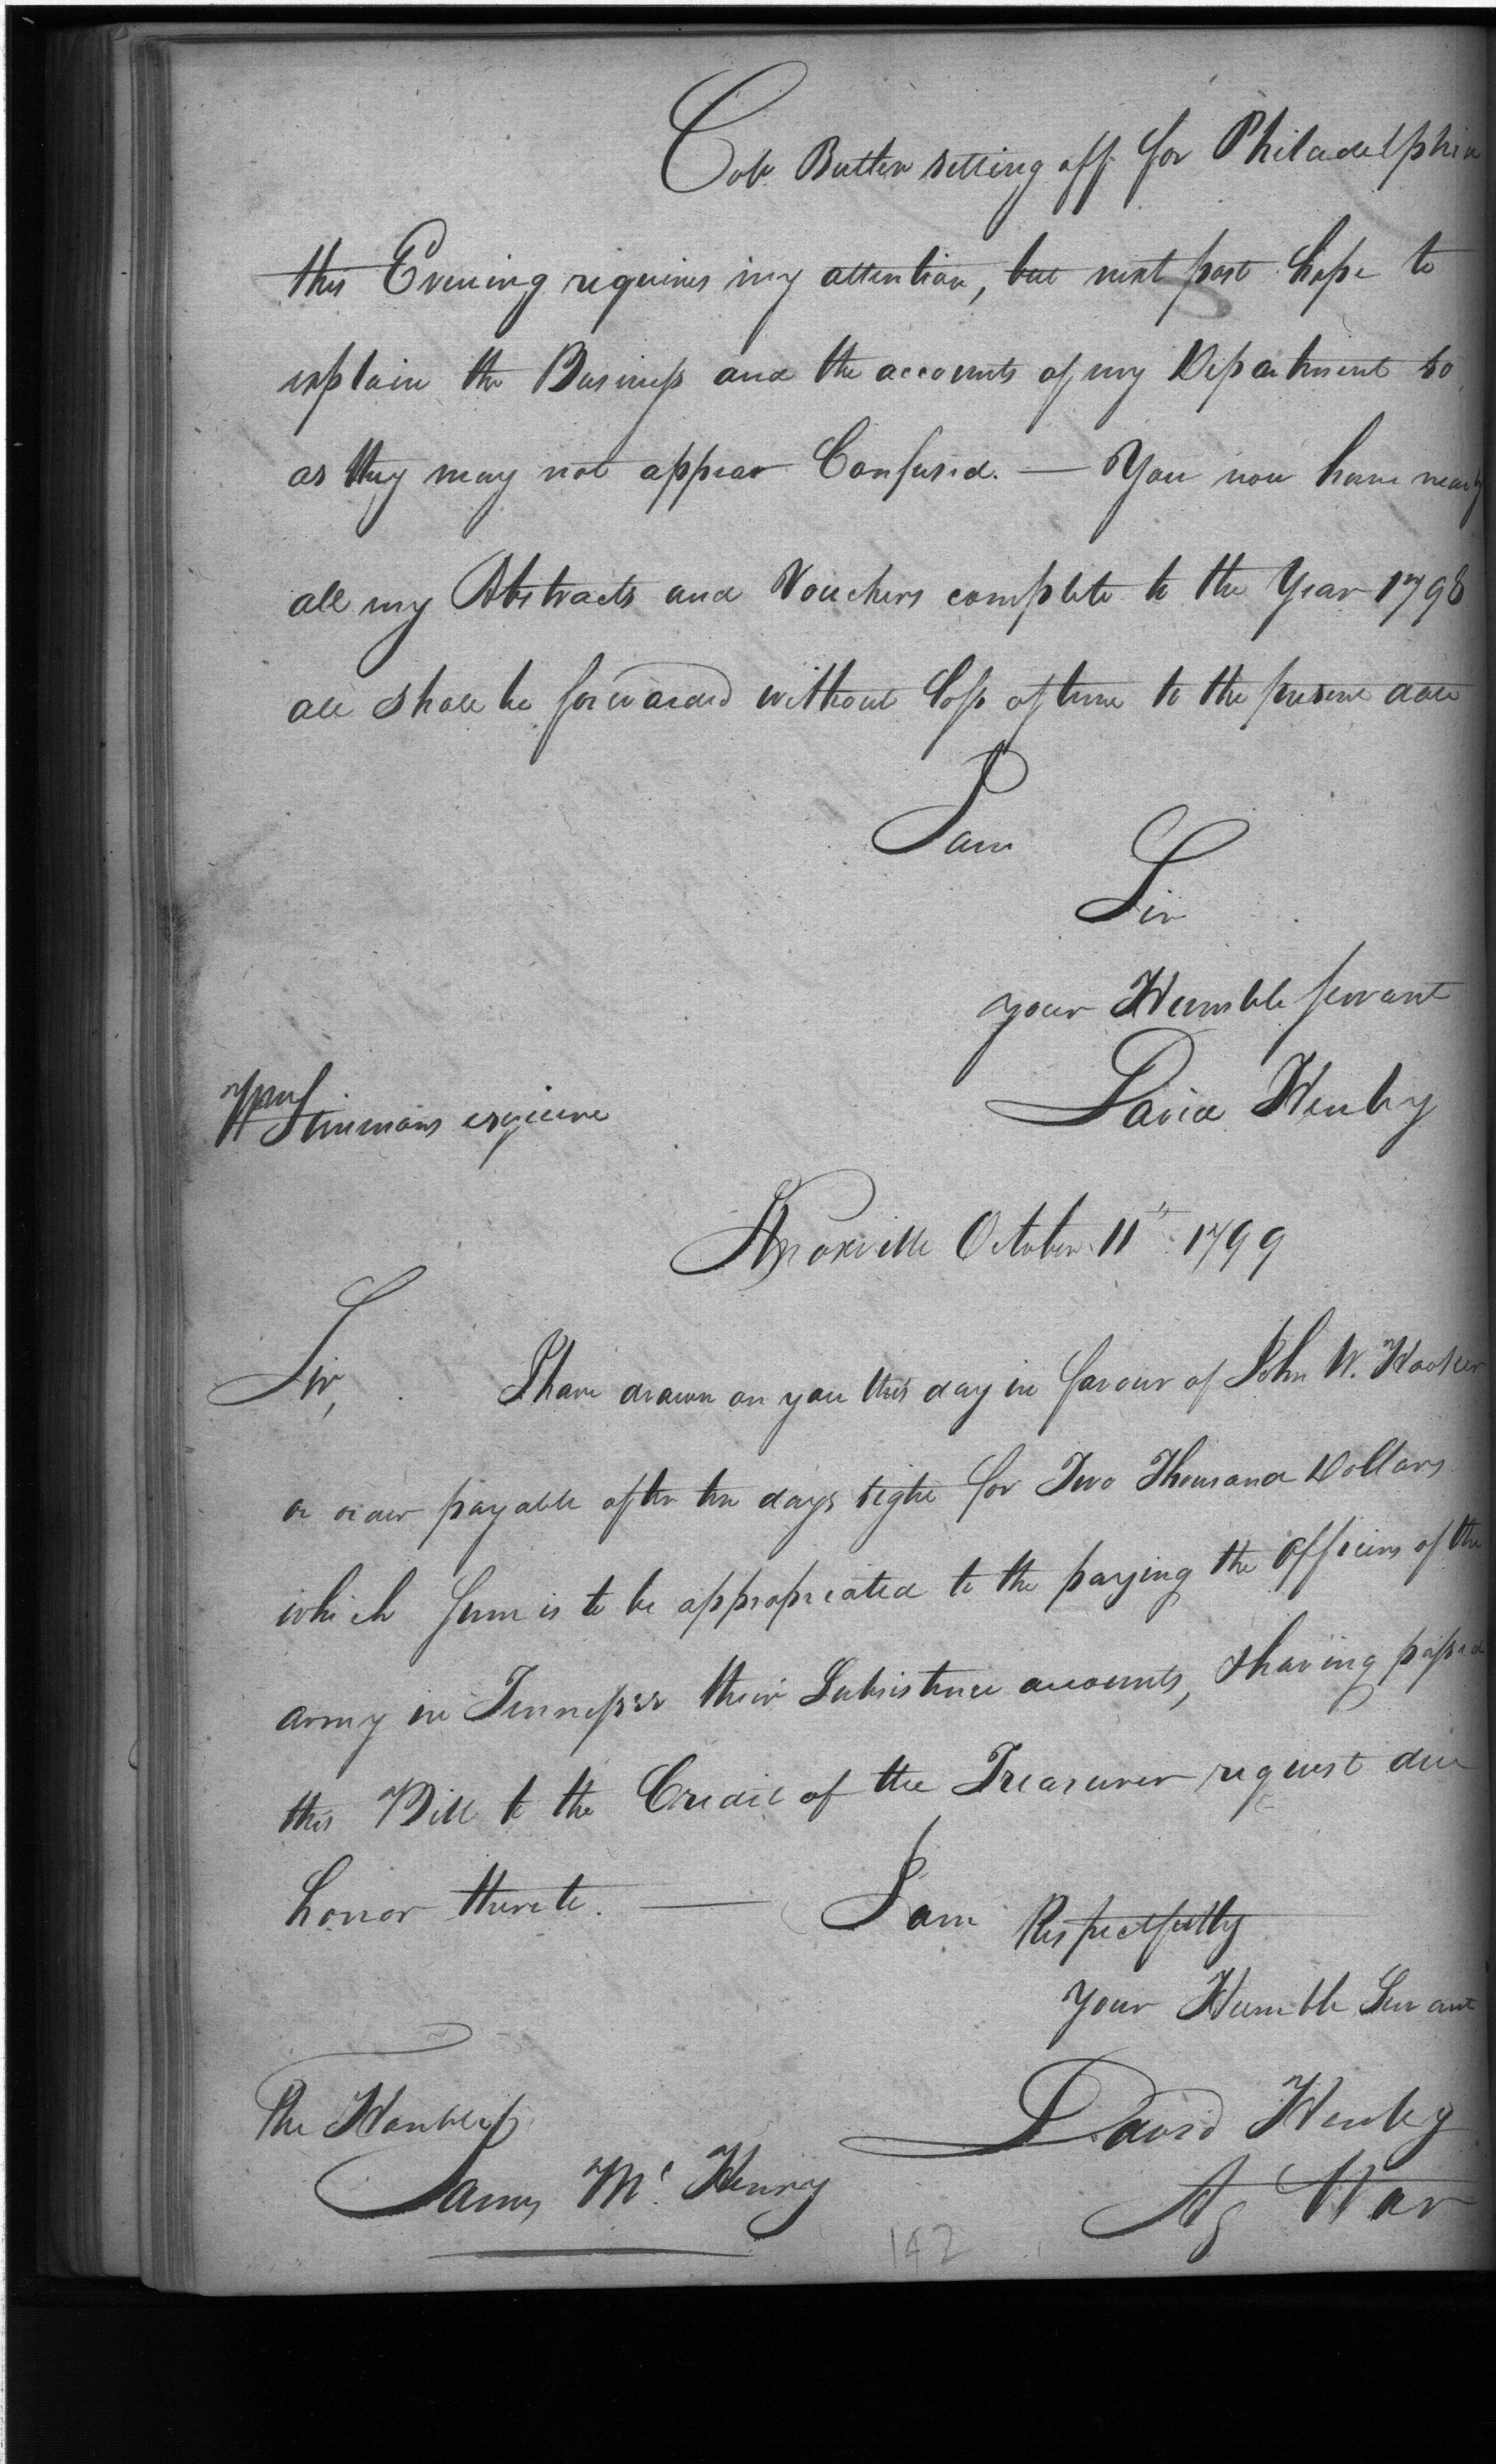 Col. Butler setting off for Philadelphia
this Evening requires my attention, but next post hope to
explain the Business and the accounts of my Department so
as they may not appear Confused. — You now have nearly
all my Abstracts and Vouchers complete to the Year 1798
all shall be forwarded without loss of time to the present date
I am
Sir
your Humble servant
David Henley
Wm Simmons esquire
Knoxville October 11th 1799
Sir, I have drawn on you this day in favour of John W. Hooker
or order payable after ten days sight for Two Thousand Dollars
which sum is to be appropriated to the paying the officers of the
army in Tennessee their Subsistence accounts, I having passed
this Bill to the Credit of the Treasurer request due
honor thereto. — I am Respectfully
Your Humble Servant
The Honble
James Mc. Henry
David Henley
Ag War
142